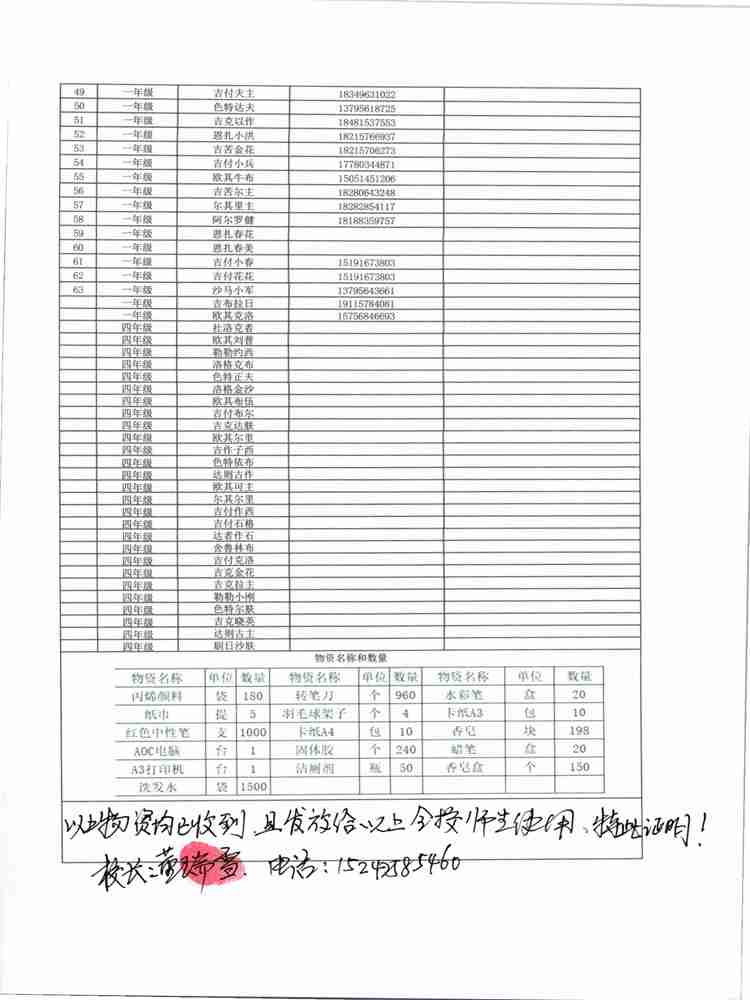 49 一年级 吉付夫主 18349631022
50 一年级 色特达夫 13795618725
51 一年级 吉克以作 18481537553
52 一年级 恩扎小洪 18215766937
53 一年级 吉苦金花 18215706273
54 一年级 吉付小兵 17780344871
55 一年级 欧其牛布 15051451206
56 一年级 吉苦尔主 18280643248
57 一年级 尔其里主 18282854117
58 一年级 阿尔罗健 18188359757
59 一年级 恩扎春花
60 一年级 恩扎春美
61 一年级 吉付小春 15191673803
62 一年级 吉付花花 15191673803
63 一年级 沙马小军 13795643661
一年级 吉布拉日 19115784081
一年级 欧其克洛 15756846693
四年级 杜洛克者
四年级 欧其刘普
四年级 勒勒约西
四年级 洛格克布
四年级 色特正夫
四年级 洛格金沙
四年级 欧其布伍
四年级 吉付布尔
四年级 吉克达肤
四年级 欧其尔里
四年级 吉作子西
四年级 色特依布
四年级 达则古作
四年级 欧其可主
四年级 尔其尔里
四年级 吉付作西
四年级 吉付石格
四年级 达者作石
四年级 舍鲁林布
四年级 吉付克洛
四年级 吉克金花
四年级 吉克拉主
四年级 勒勒小刚
四年级 色特尔肤
四年级 吉克晓英
四年级 达则古主
四年级 日沙肤
物资名称和数量
物资名称 单位 数量 物资名称 单位 数量 物资名称 单位 数量
丙烯颜料 袋 180 转笔刀 个 960 水彩笔 盒 20
纸巾 提 5 羽毛球架子 个 4 卡纸A3 包 10
红色中性笔 支 1000 卡纸A4 包 10 香皂 块 198
AOC电脑 台 1 固体胶 个 240 蜡笔 盒 20
A3打印机 台 1 洁厕剂 瓶 50 香皂盒 个 150
洗发水 袋 1500
以上物资均已收到,且发放给以上全校师生使用、特此证明!
校长:董瑞雪. 电话:15242585460